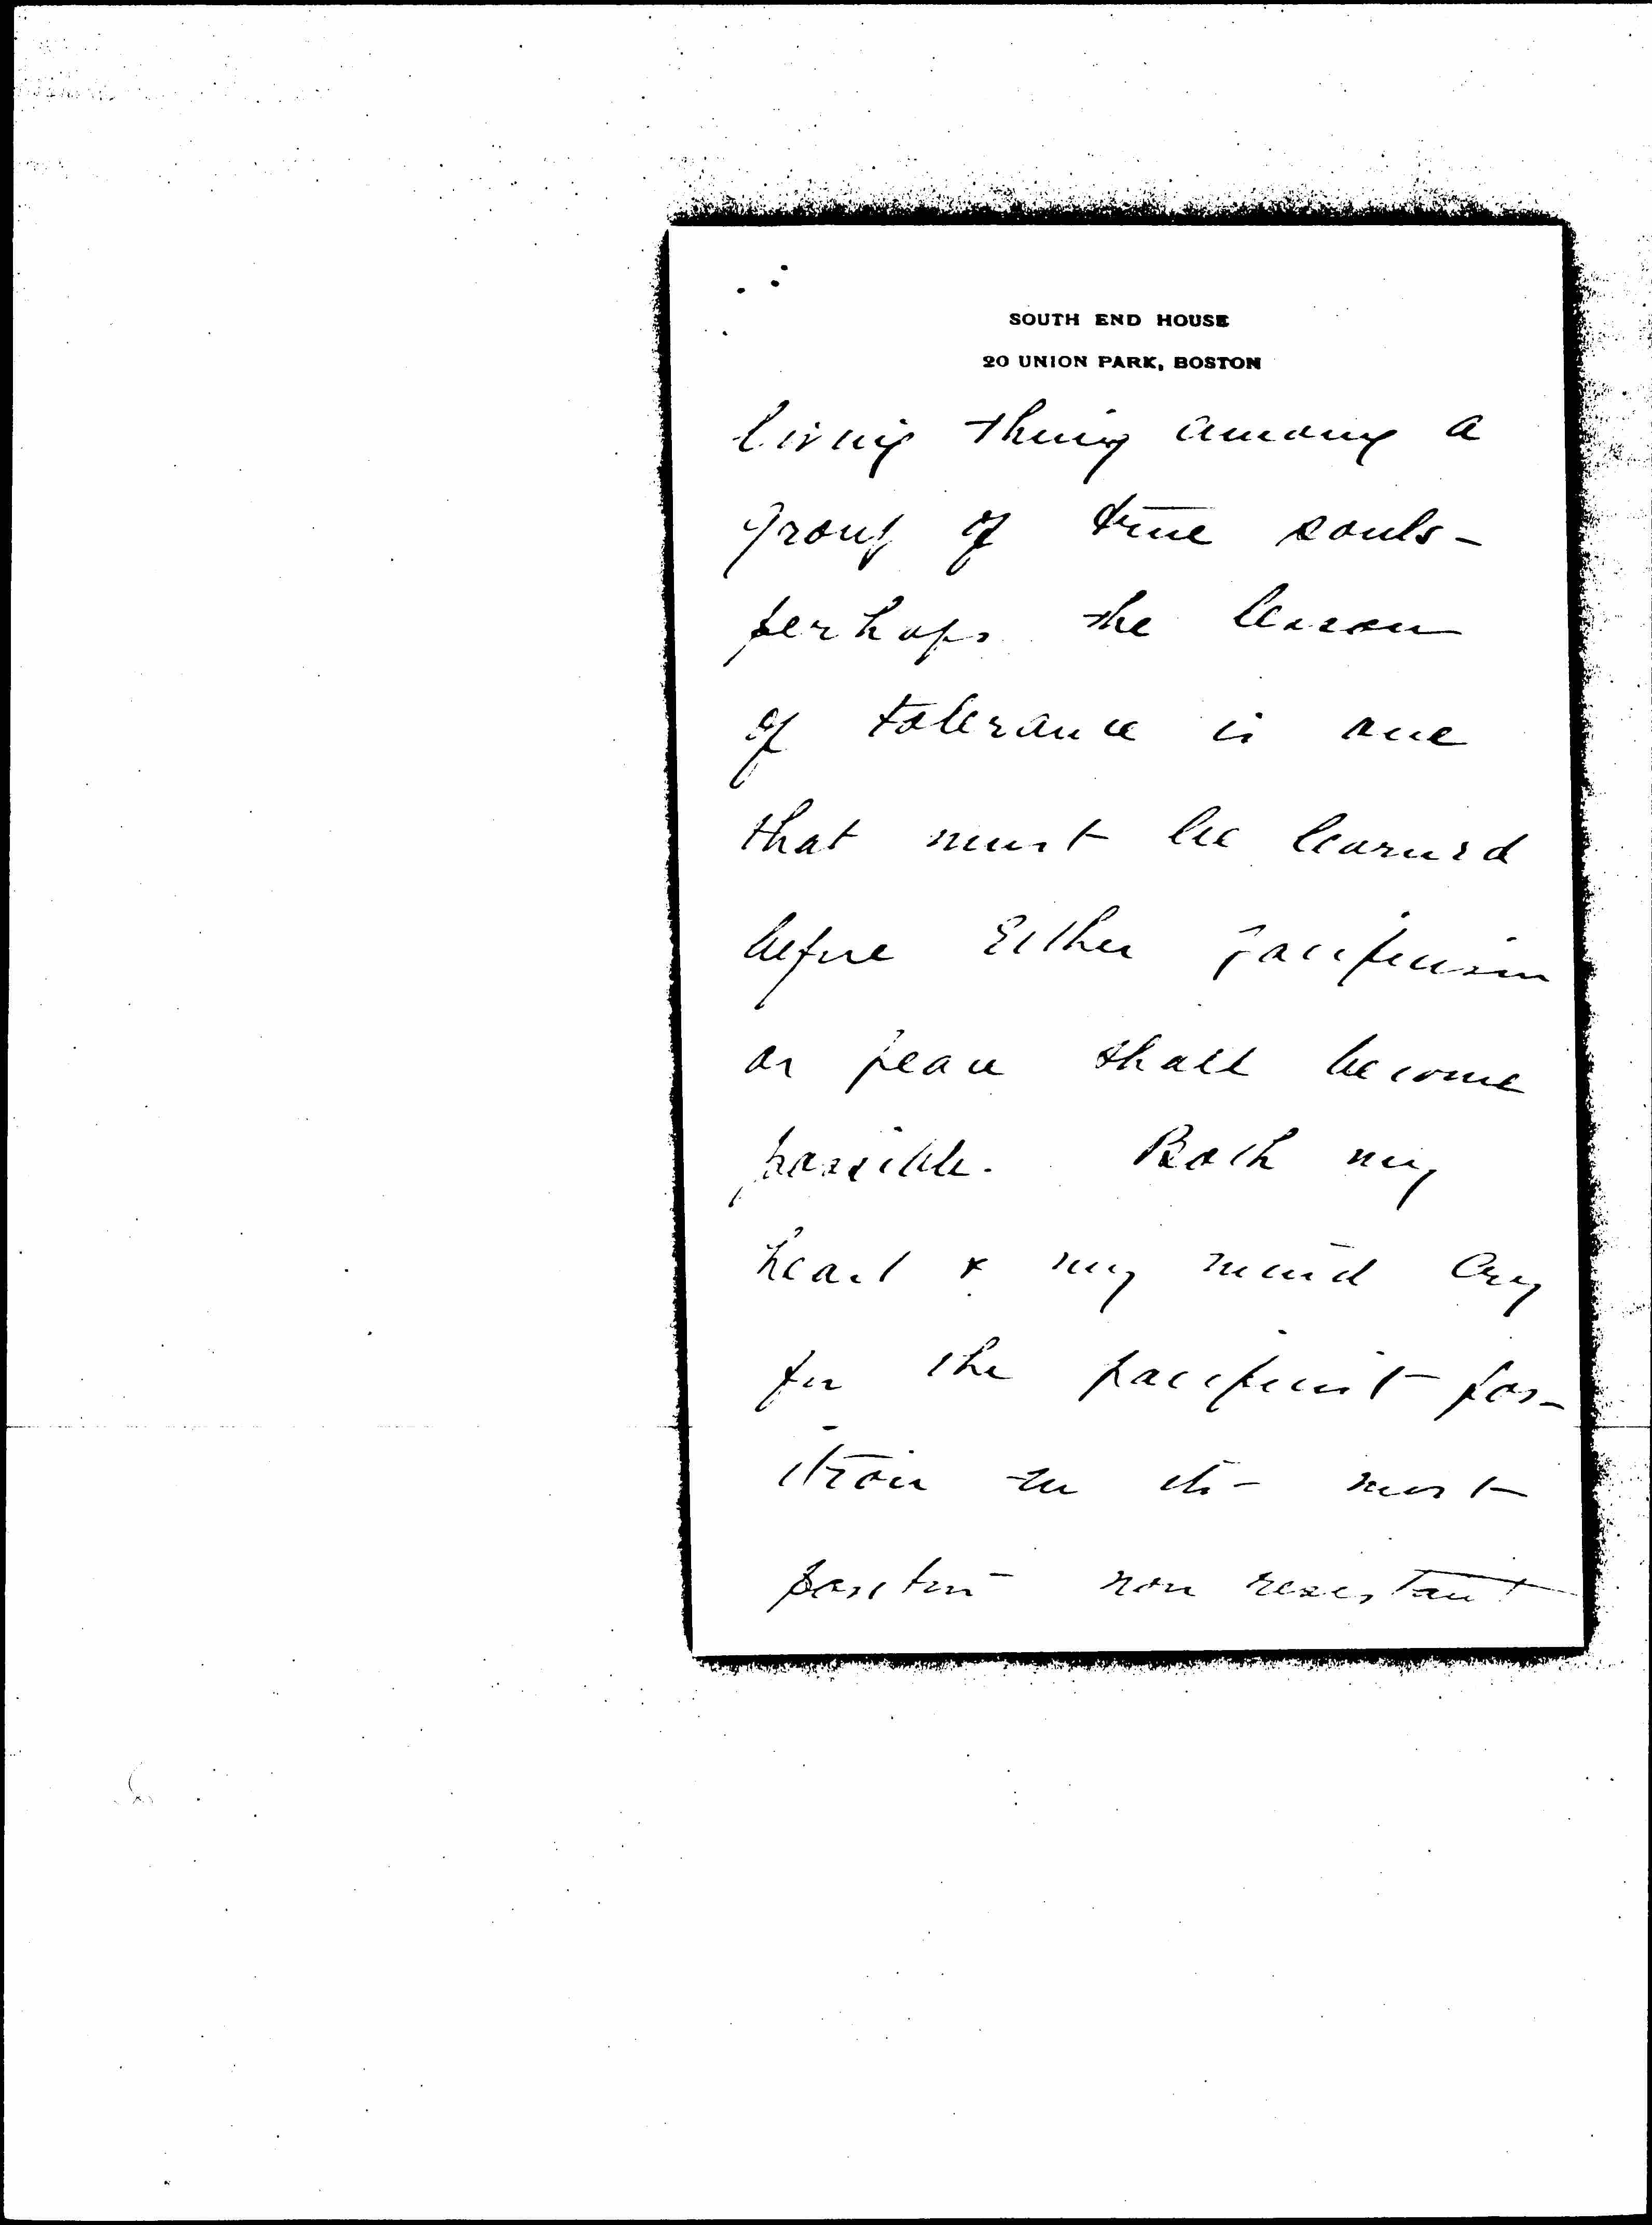 SOUTH END HOUSE
20 UNION PARK, BOSTON
living thing among a
group of true souls -
perhaps the lesson
of tolerance is one
that must be learned
before either pacificism
or peace shall become
possible. Both my
heart & my mind cry
for the pacificist pos-
ition in its most
positive non resistant